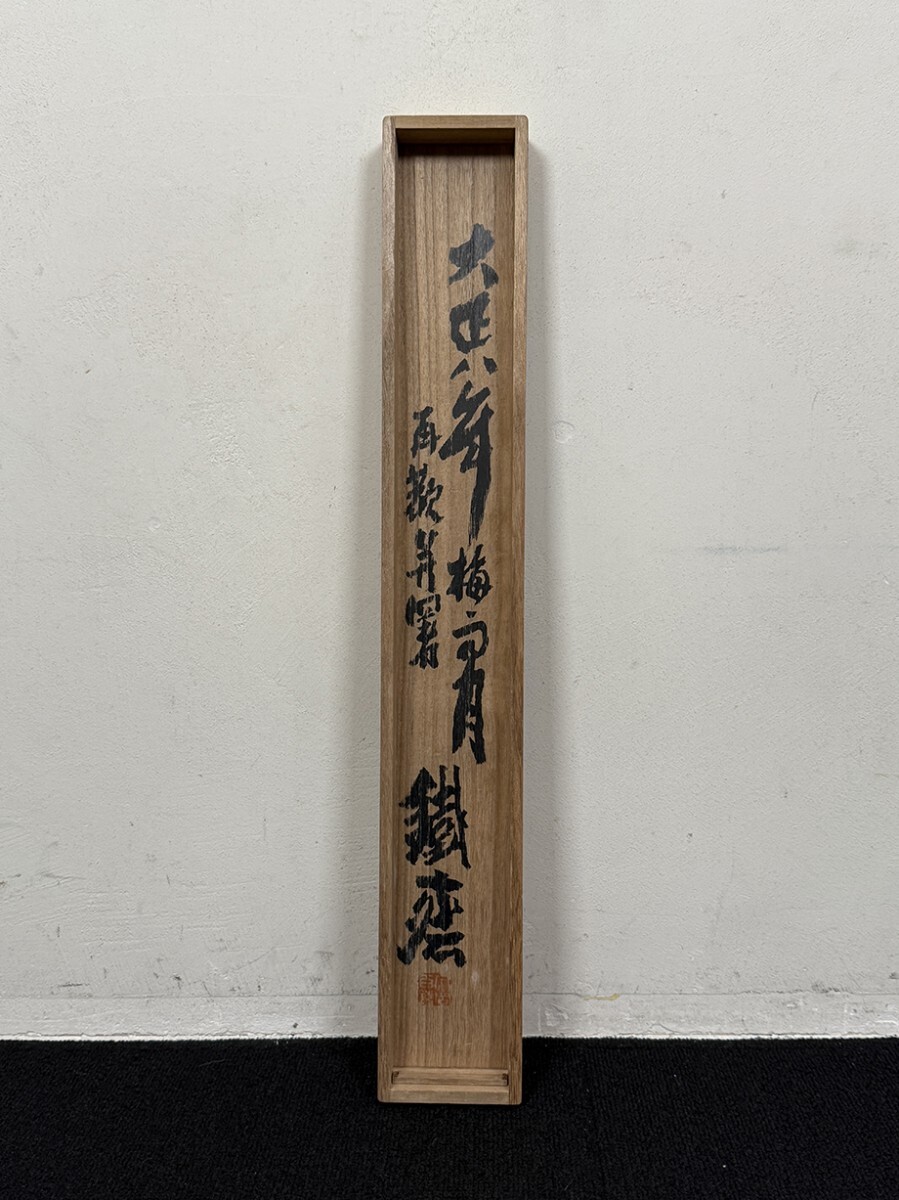 大正八年梅雨月
再觀并署
鐵斎